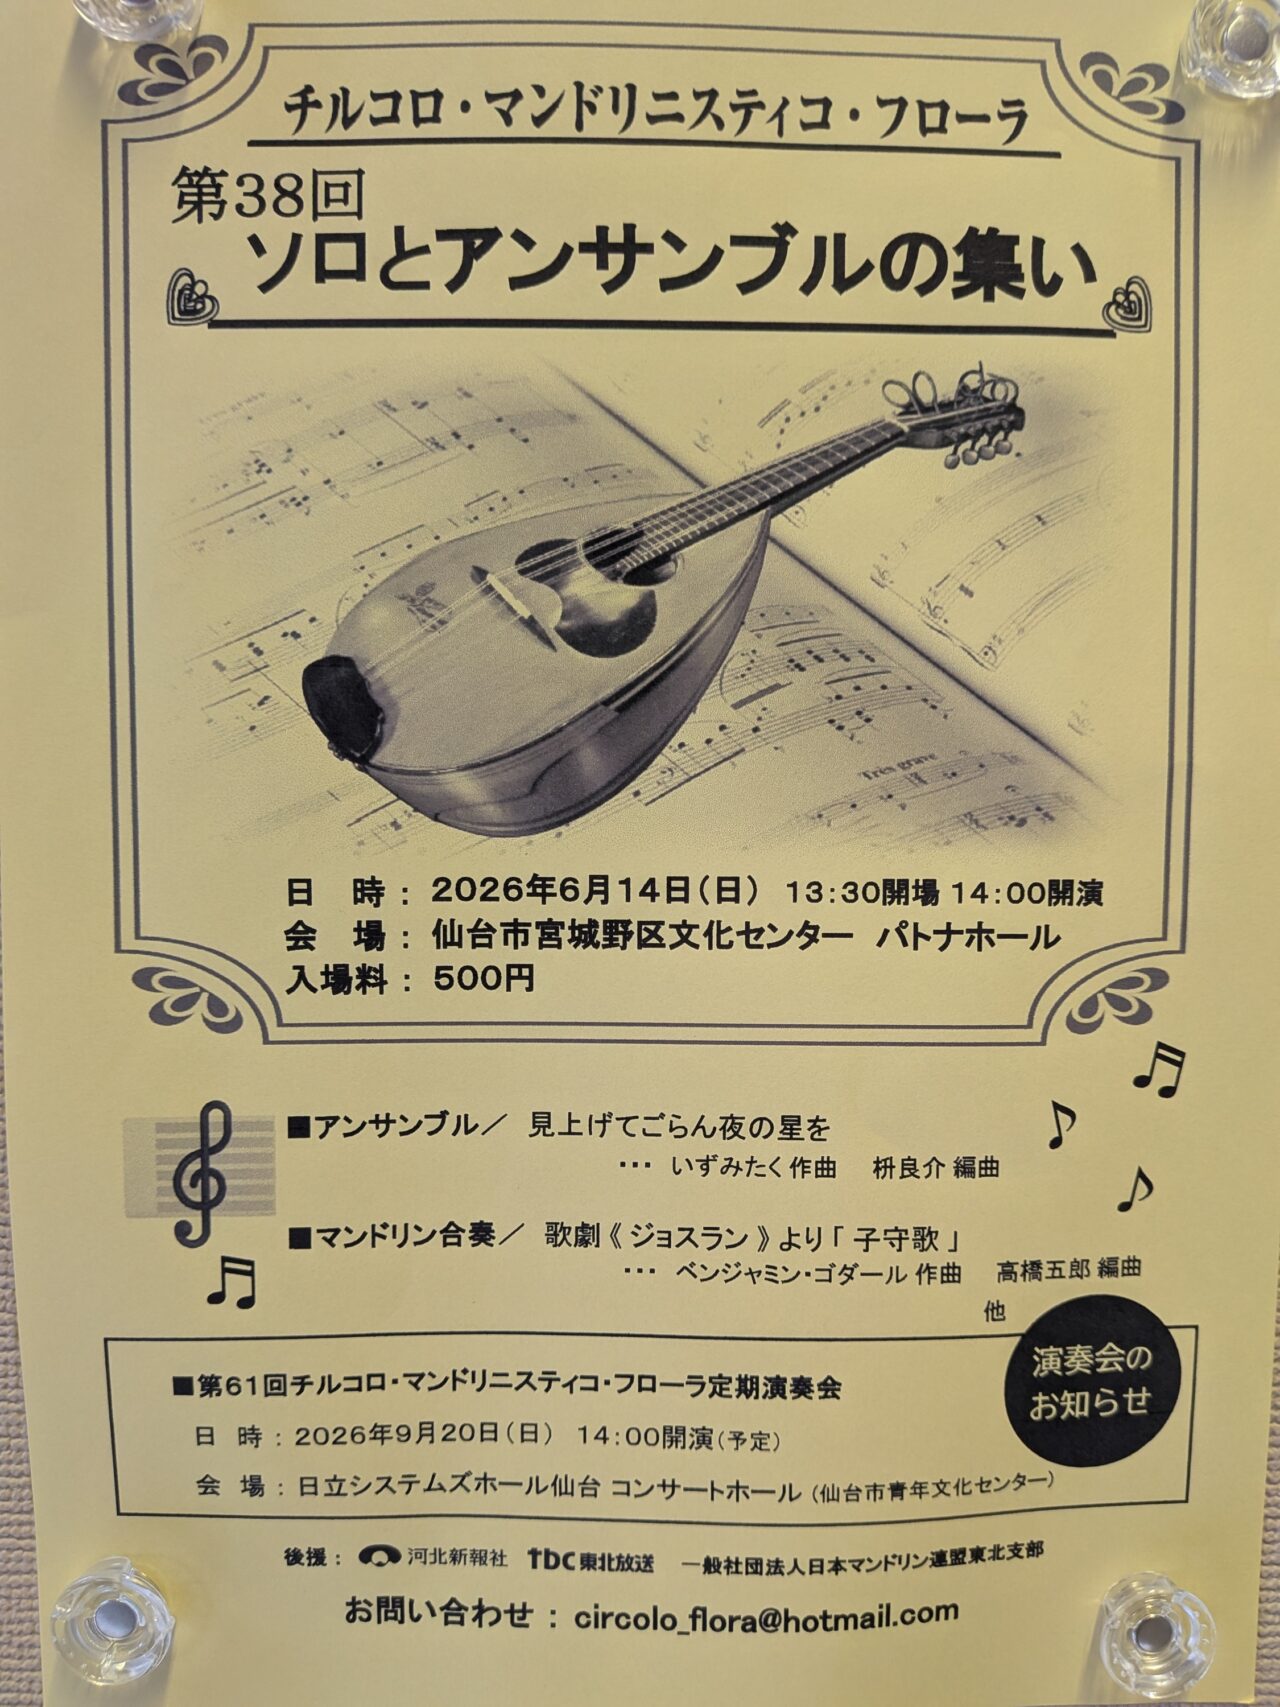 チルコロ・マンドリニスティコ・フローラ
第38回
ソロとアンサンブルの集い
Très grave
日　時： 2026年6月14日(日)　13:30開場 14:00開演
会　場： 仙台市宮城野区文化センター　パトナホール
入場料： 500円
■アンサンブル／　見上げてごらん夜の星を
･･･　いずみたく 作曲　枡良介 編曲
■マンドリン合奏／　歌劇《 ジョスラン 》より「 子守歌 」
･･･　ベンジャミン・ゴダール 作曲　高橋五郎 編曲
他
演奏会の
お知らせ
■第61回チルコロ・マンドリニスティコ・フローラ定期演奏会
日　時： 2026年9月20日(日)　14:00開演(予定)
会　場： 日立システムズホール仙台 コンサートホール (仙台市青年文化センター)
後援： 河北新報社　tbc東北放送　一般社団法人日本マンドリン連盟東北支部
お問い合わせ： circolo_flora@hotmail.com